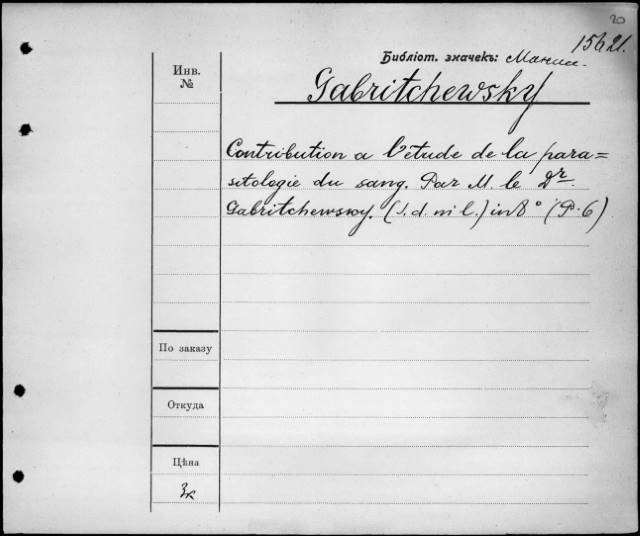 20
15621.
Библіот. значекъ:
Инв.
№
Gabritchewsky
Contribution a l'étude de la para=
sitologie du sang. Par M. le Dr.
Gabritchewsky. (S. d. ni l.) in 8° (P. 6)
По заказу
Откуда
Цѣна
3к